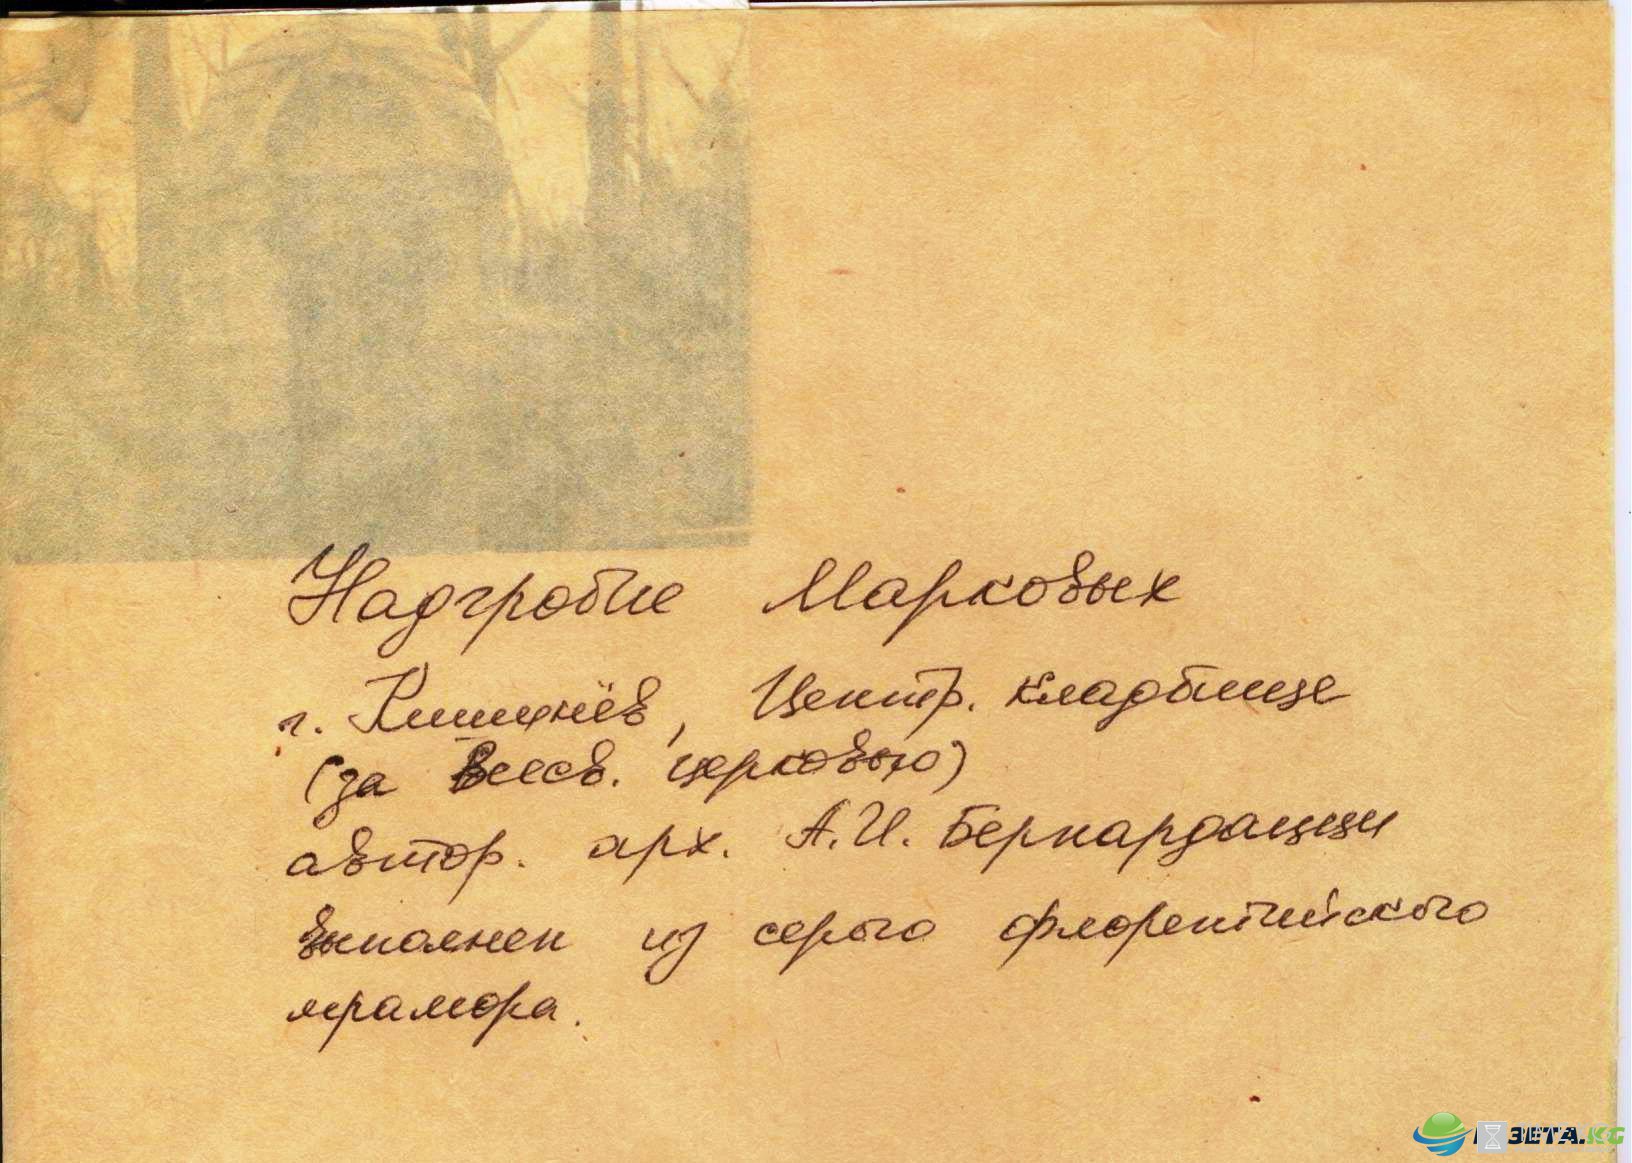 Надгробие Марковых
г. Кишинёв, Центр. кладбище
(за Всесв. церковью)
автор. арх. А.И. Бернардацци
выполнен из серого флорентийского
мрамора.
ЗЕТА.KG